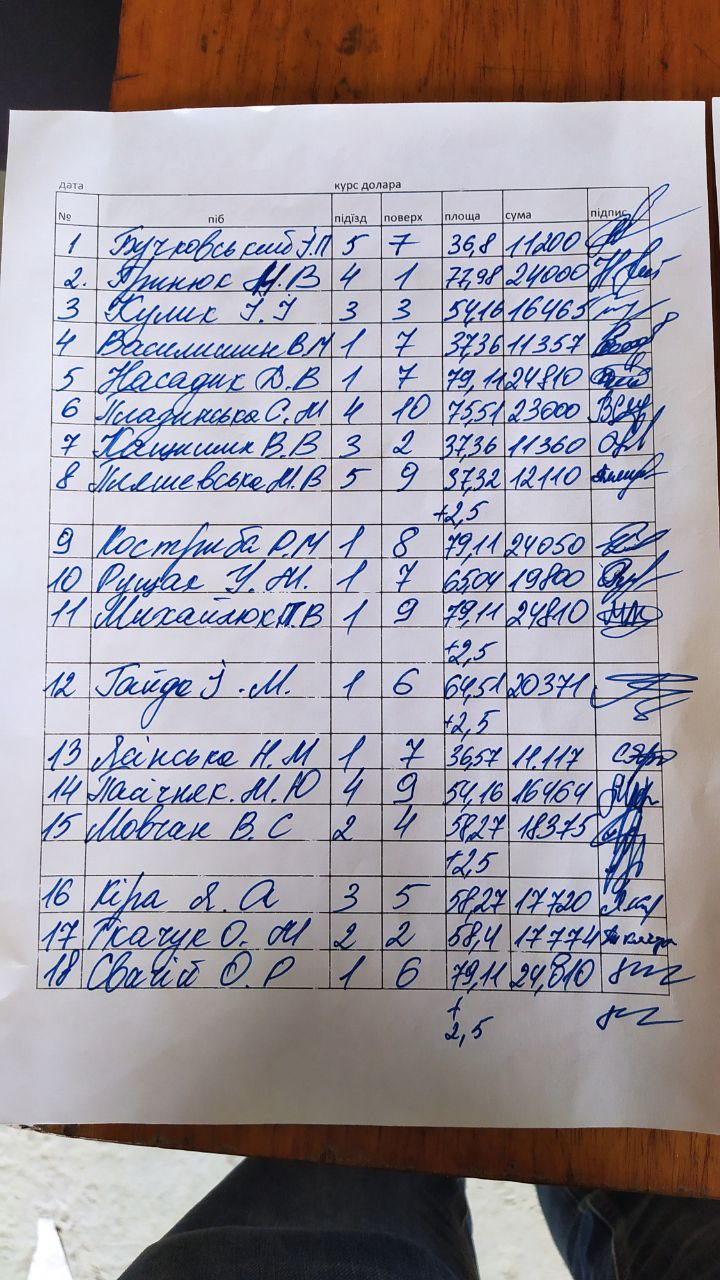 дата курс долара
№ піб підїзд поверх площа сума підпис
1 Бучковський І.П 5 7 36,8 11200
2. Гринюк М.В 4 1 77,98 24000
3 Кулик І.І 3 3 54,16 16465
4 Василишин В.М 1 7 37,36 11357
5 Насадик Д.В 1 7 79,11 24810
6 С.М 4 10 75,51 23000
7 В.В 3 2 37,36 11360
8 М.В 5 9 37,32 12110
+2,5
9 Костриба Р.М 1 8 79,11 24050
10 Рущак У.М. 1 7 6504 19800
11 Михайлюк П.В 1 9 79,11 24810
+2,5
12 Гайда І.М. 1 6 64,51 20371
+2,5
13 Яcінська Н.М 1 7 36,57 11.117
14 Пасічняк.М.Ю 4 9 54,16 16464
15 Мовчан В.С 2 4 58,27 18375
+2,5
16 Кіра Я.А 3 5 58,27 17720
17 Ткачук О.М 2 2 58,4 17774
18 Свачій О.Р 1 6 79,11 24,810
+
2,5